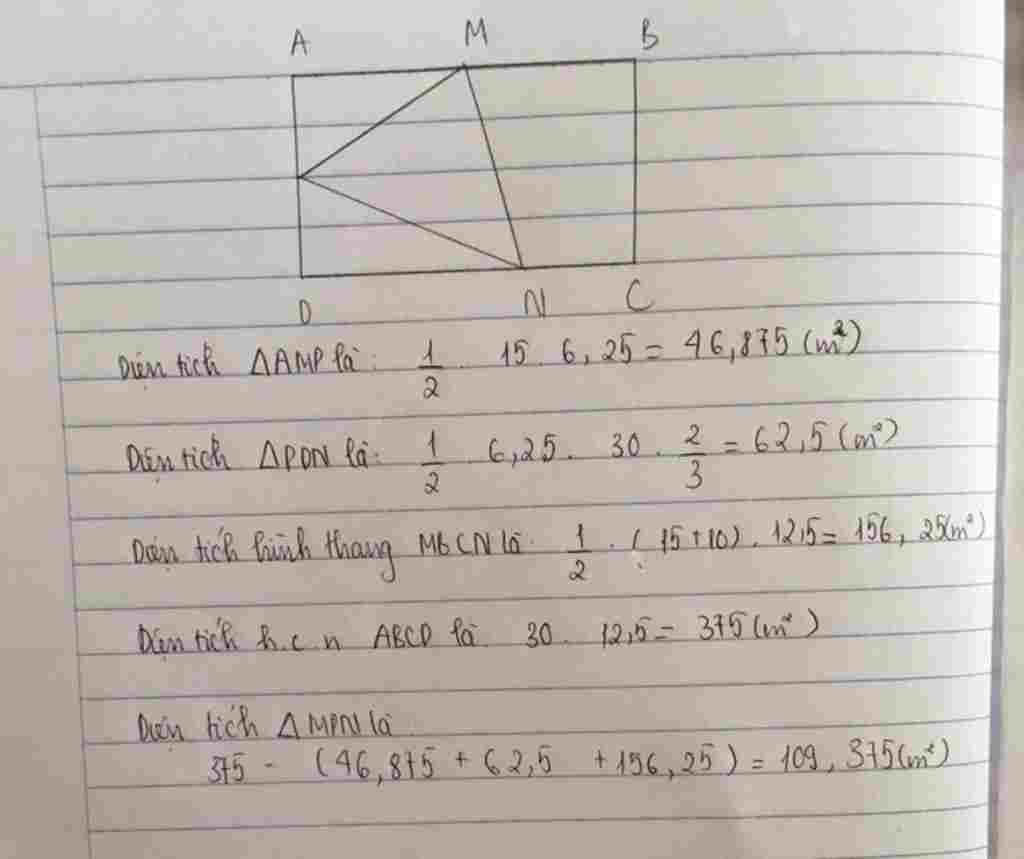 A M B
D N C
Diện tích ΔAMP là: 1/2 . 15 . 6,25 = 46,875 (m²)
Diện tích ΔPDN là: 1/2 . 6,25 . 30 . 2/3 = 62,5 (m²)
Diện tích hình thang MBCN là 1/2 . (15+10) . 12,5 = 156,25(m²)
Diện tích h.c.n ABCD là 30 . 12,5 = 375 (m²)
Diện tích ΔMPN là
375 - (46,875 + 62,5 + 156,25) = 109,375(m²)